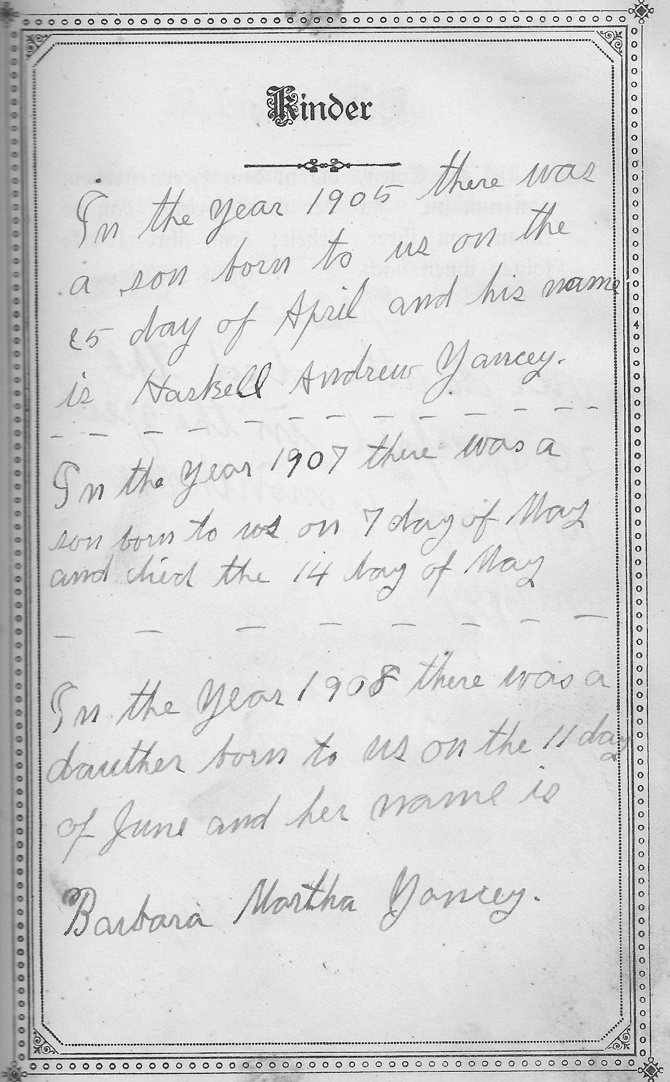 Kinder
In the year 1905 there was
a son born to us on the
25 day of April and his name
is Haskell Andrew Yancey.
In the year 1907 there was a
son born to us on 7 day of May
and died the 14 day of May
In the year 1908 there was a
dauther born to us on the 11 day
of June and her name is
Barbara Martha Yancey.